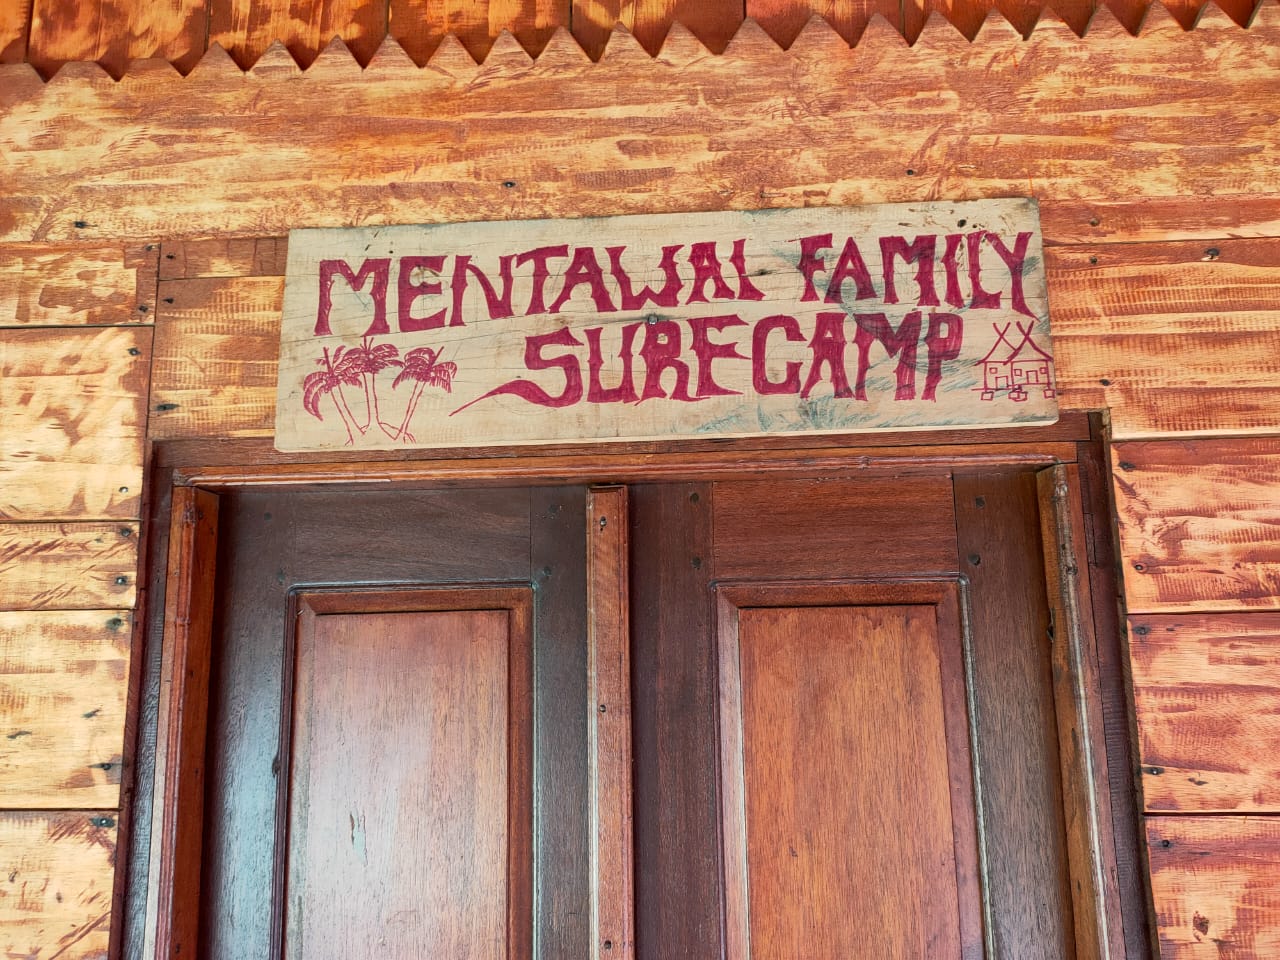 MENTAWAI FAMILY
SURFCAMP